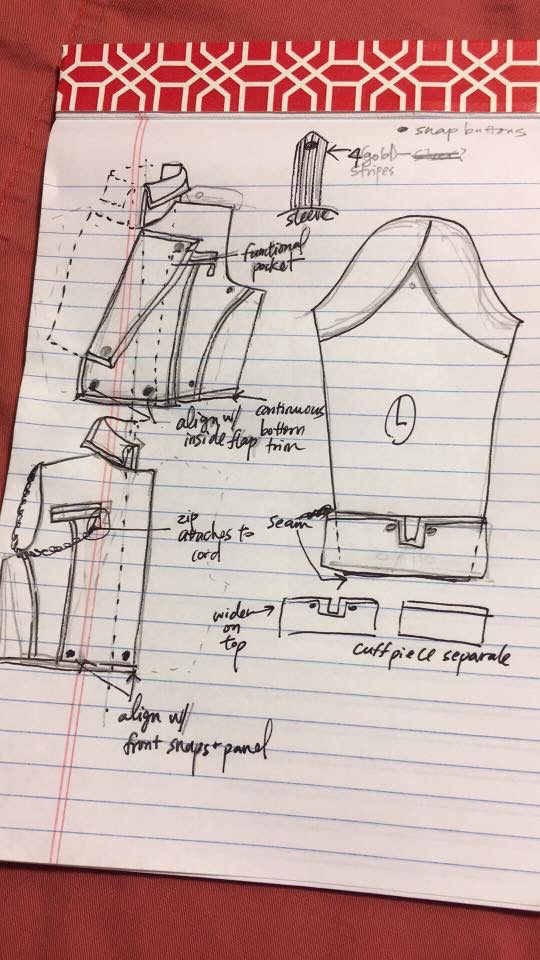 snap buttons
4 gold
stripes
sleeve
functional
pocket
align w/
inside flap
continuous
bottom
trim
L
zip
attaches to
cord
seam
wider
on
top
cuff piece separate
align w/
front snaps + panel